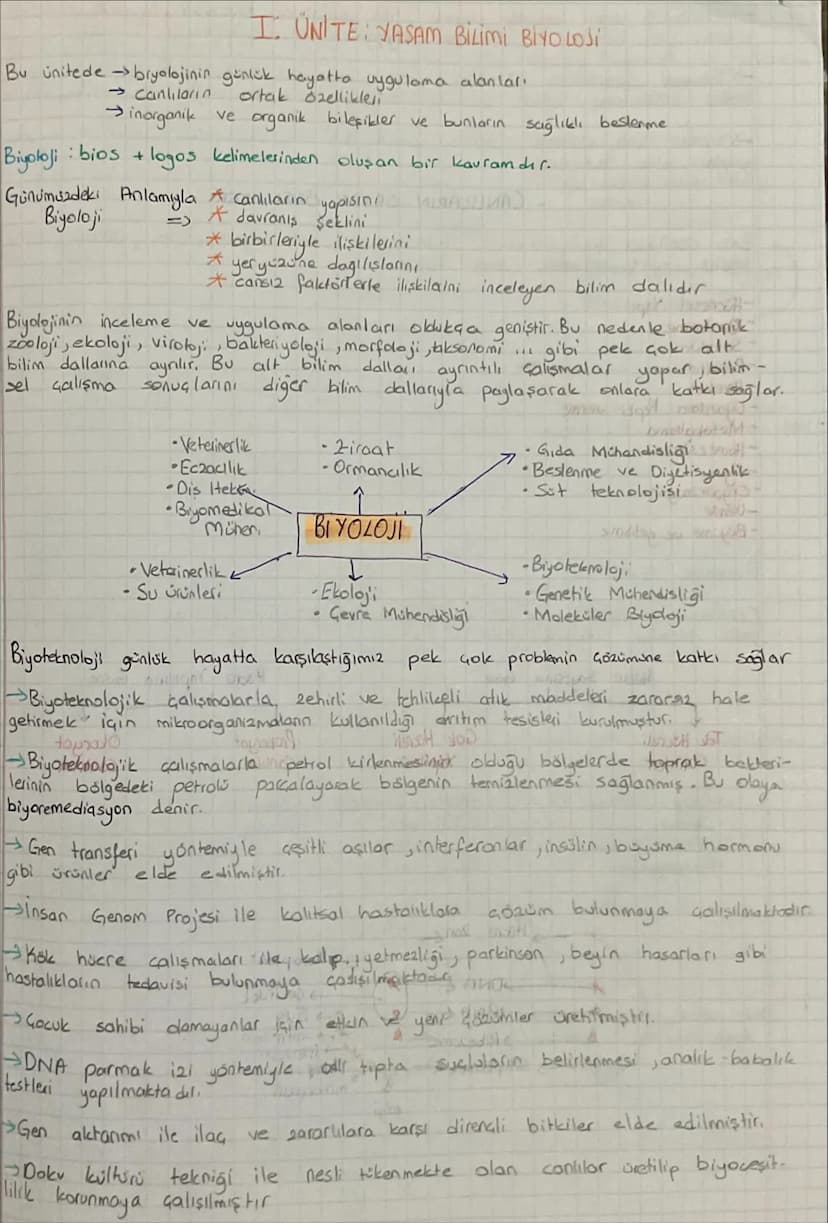 I. ÜNİTE: YAŞAM BİLİMİ BİYOLOJİ
Bu ünitede → biyolojinin günlük hayatta uygulama alanları
→ canlıların ortak özellikleri
→ inorganik ve organik bileşikler ve bunların sağlıklı beslenme
Biyoloji : bios + logos kelimelerinden oluşan bir kavramdır.
Günümüzdeki Anlamıyla * canlıların yapısını
Biyoloji => * davranış şeklini
* birbirleriyle ilişkilerini
* yeryüzüne dağılışlarını
* cansız faktörlerle ilişkilerini inceleyen bilim dalıdır
Biyolojinin inceleme ve uygulama alanları oldukça geniştir. Bu nedenle botanik
zooloji, ekoloji, viroloji, bakteriyoloji, morfoloji, taksonomi ... gibi pek çok alt
bilim dallarına ayrılır. Bu alt bilim dalları ayrıntılı çalışmalar yapar, bilim-
sel çalışma sonuçlarını diğer bilim dallarıyla paylaşarak onlara katkı sağlar.
• Veterinerlik
• Eczacılık
• Diş Hekim
• Biyomedikal
Mühen.
• Ziraat
• Ormancılık
• Gıda Mühendisliği
• Beslenme ve Diyetisyenlik
• Süt teknolojisi
BİYOLOJİ
• Veterinerlik
• Su ürünleri
• Ekoloji
• Çevre Mühendisliği
• Biyoteknoloji
• Genetik Mühendisliği
• Moleküler Biyoloji
Biyoteknoloji günlük hayatta karşılaştığımız pek çok problemin çözümüne katkı sağlar
→ Biyoteknolojik çalışmalarla, zehirli ve tehlikeli atık maddeleri zararsız hale
getirmek için mikroorganizmaların kullanıldığı arıtım tesisleri kurulmuştur.
→ Biyoteknolojik çalışmalarla petrol kirlenmesinin olduğu bölgelerde toprak bakteri-
lerinin bölgedeki petrolü parçalayarak bölgenin temizlenmesi sağlanmış. Bu olaya
biyoremediasyon denir.
→ Gen transferi yöntemiyle çeşitli aşılar, interferonlar, insülin, büyüme hormonu
gibi ürünler elde edilmiştir.
→ İnsan Genom Projesi ile kalıtsal hastalıklara çözüm bulunmaya çalışılmaktadır
→ Kök hücre çalışmaları ile, kalp yetmezliği, parkinson, beyin hasarları gibi
hastalıkların tedavisi bulunmaya çalışılmaktadır
→ Çocuk sahibi olamayanlar için etkin ve yeni çözümler üretilmiştir.
→ DNA parmak izi yöntemiyle, adli tıpta suçluların belirlenmesi, analık-babalık
testleri yapılmaktadır.
→ Gen aktarımı ile ilaç ve zararlılara karşı dirençli bitkiler elde edilmiştir.
→ Doku kültürü tekniği ile nesli tükenmekte olan canlılar üretilip biyoçeşit-
lilik korunmaya çalışılmıştır